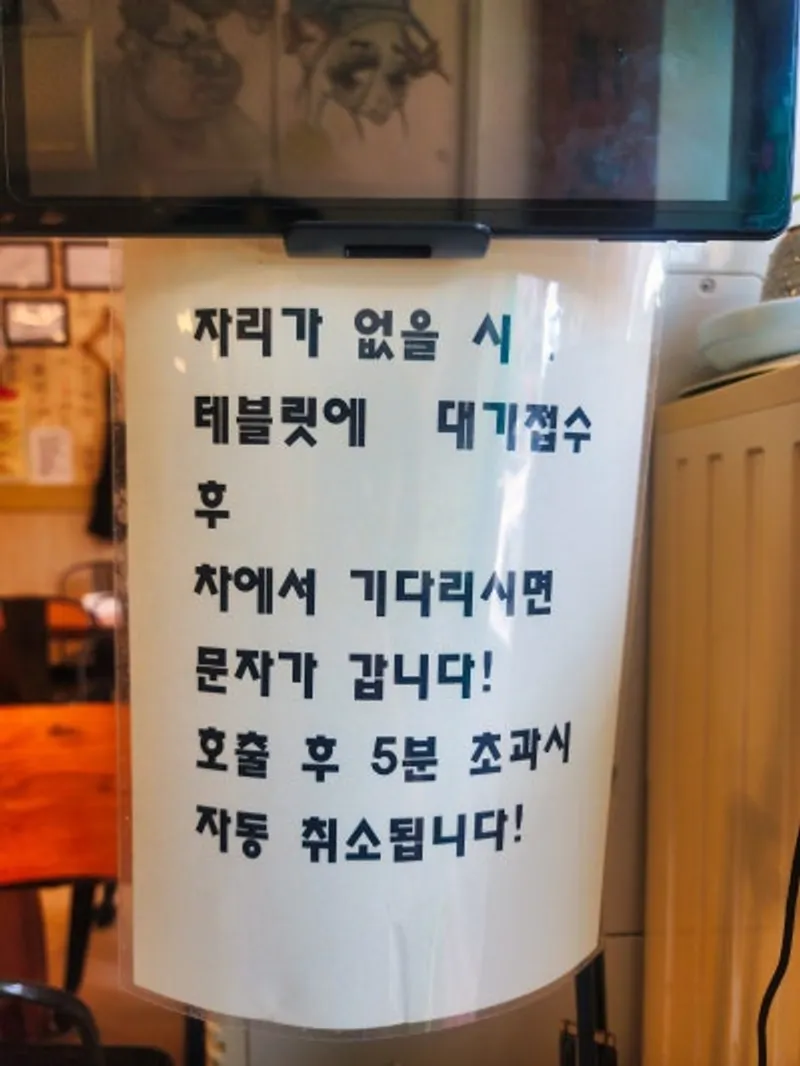 자리가 없을 시
테블릿에 대기접수
후
차에서 기다리시면
문자가 갑니다!
호출 후 5분 초과시
자동 취소됩니다!